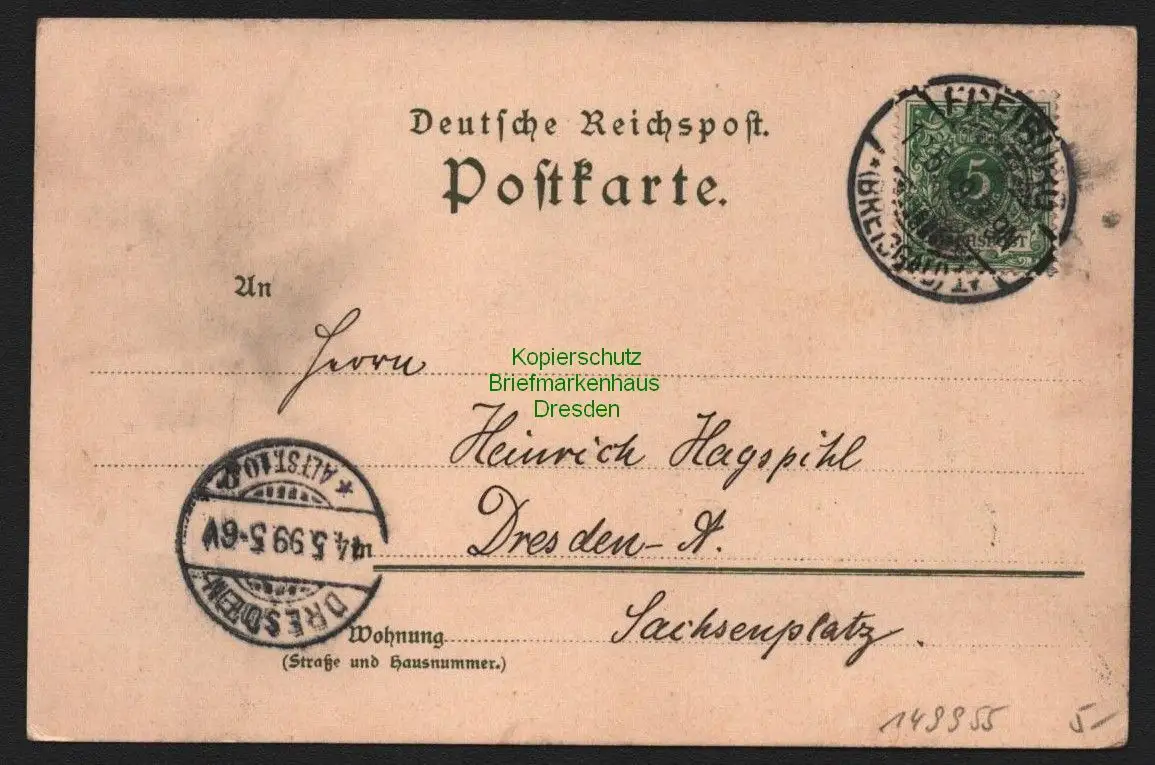 Deutsche Reichspost.
Postkarte.
5
FREIBURG
(BREISGAU)
An
Herrn
Kopierschutz
Briefmarkenhaus
Dresden
Heinrich Hagspihl
Dresden-A.
DRESDEN
4.5.99.5-6V
ALTST.10.
Sachsenplatz.
Wohnung
(Straße und Hausnummer.)
149955 5-